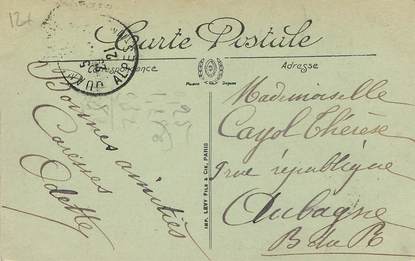 12+
Carte Postale
Correspondance
Adresse
Bonnes amitiés
Caresses
Odette
Mademoiselle
Cayol Thérèse
1 rue république
Aubagne
B du R
IMP. LÉVY FILS & CIE, PARIS